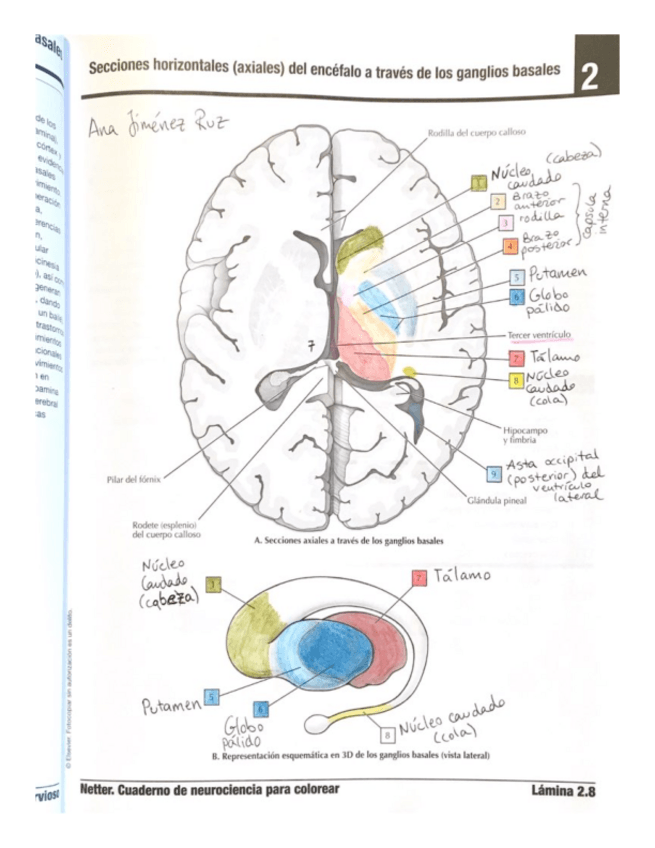 asales
Secciones horizontales (axiales) del encéfalo a través de los ganglios basales
2
Ana Jiménez Ruz
de los
aminal,
córtex y
evidenci
asales
vimiento
eración
a.
erencias
n,
ular
cinesia
), así con
generan
, dando
un balis
trastorn
imientos
cionales
vimiento
n en
pamina
erebral
as
Rodilla del cuerpo calloso
1 Núcleo caudado (cabeza)
2 Brazo anterior
3 rodilla
4 Brazo posterior
cápsula interna
5 Putamen
6 Globo pálido
Tercer ventrículo
7
7 Tálamo
8 Núcleo caudado (cola)
Hipocampo
y fimbria
9 Asta occipital (posterior) del ventrículo lateral
Glándula pineal
Pilar del fórnix
Rodete (esplenio)
del cuerpo calloso
A. Secciones axiales a través de los ganglios basales
Núcleo
Caudado
(cabeza)
1
7 Tálamo
Putamen 5
6
Globo
pálido
8 Núcleo caudado
(cola)
B. Representación esquemática en 3D de los ganglios basales (vista lateral)
© Elsevier. Fotocopiar sin autorización es un delito.
rvioso
Netter. Cuaderno de neurociencia para colorear
Lámina 2.8